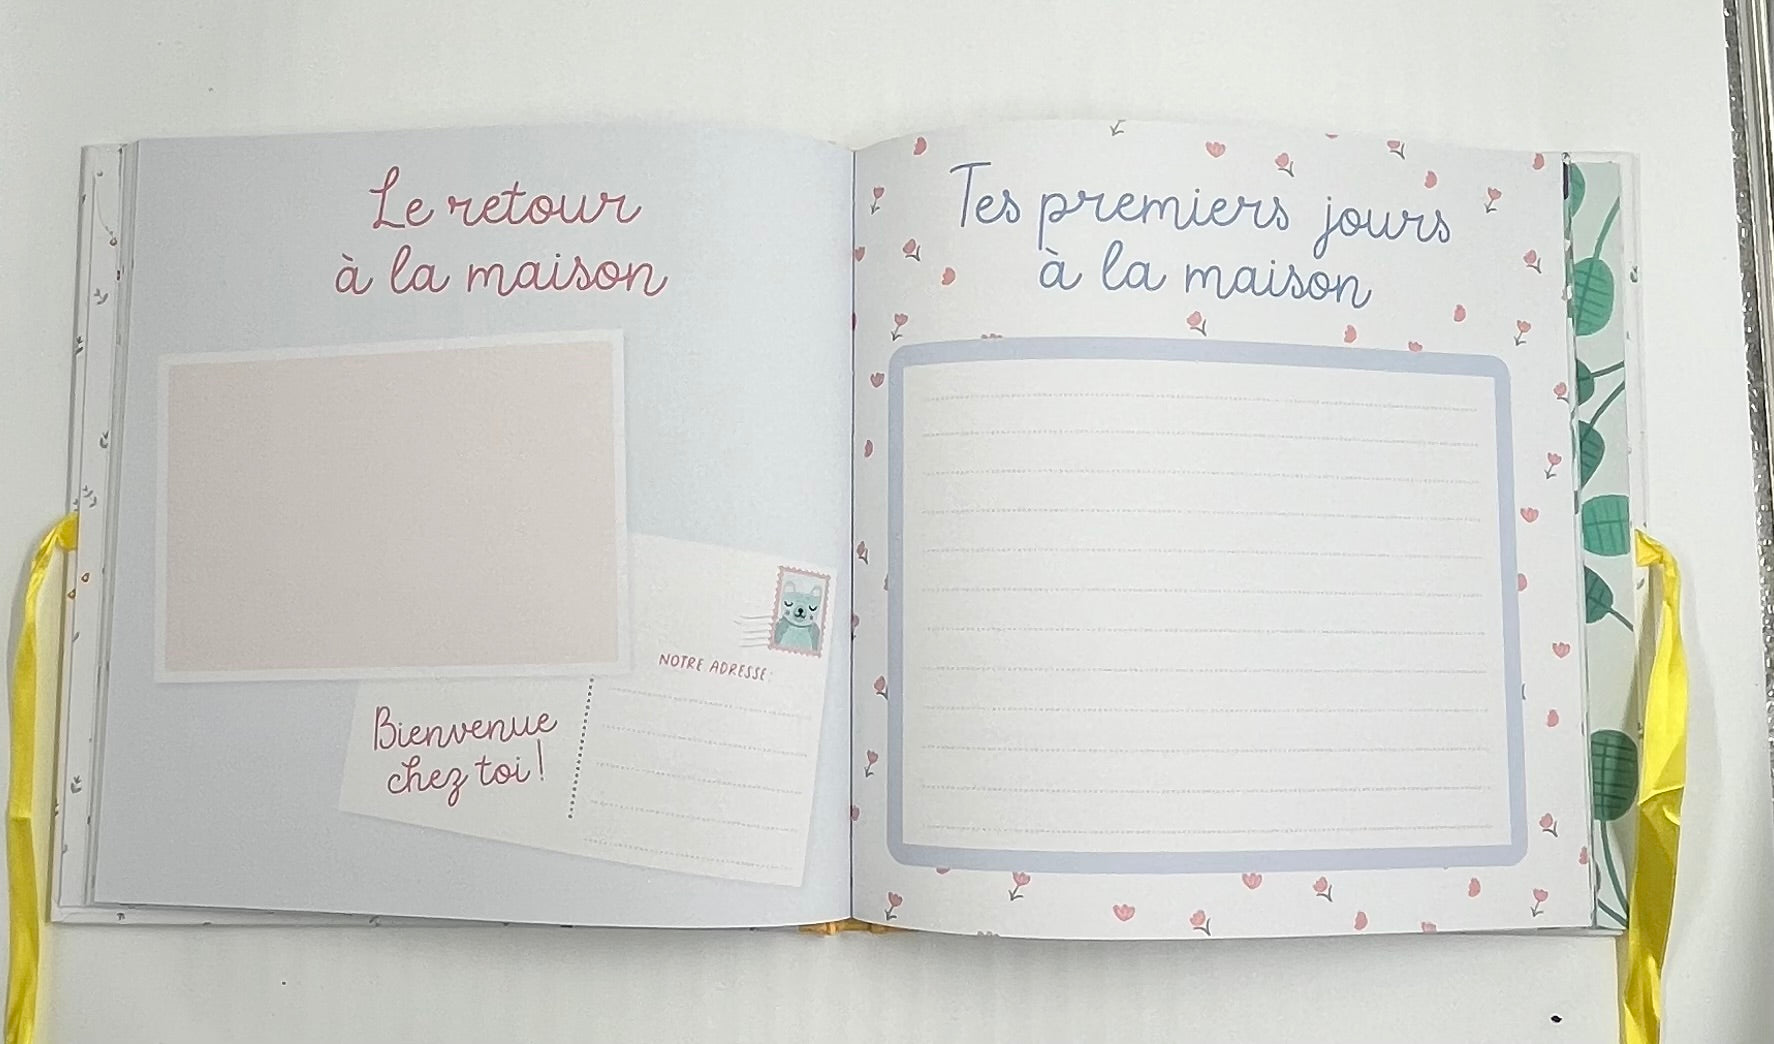 Le retour
à la maison
NOTRE ADRESSE:
Bienvenue
chez toi!
Tes premiers jours
à la maison